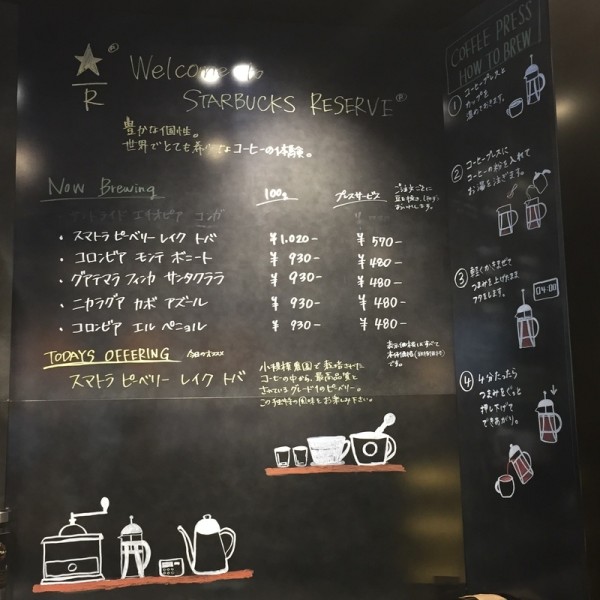 R
Welcome to
STARBUCKS RESERVE®
豊かな個性。
世界でとても希少なコーヒーの体験。
Now Brewing 100g プレスサービス
エチオピア コンガ
・ スマトラ ピーベリー レイク トバ ¥1,020- ¥570-
・ コロンビア モンテ ボニート ¥930- ¥480-
・ グアテマラ フィンカ サンタクララ ¥930- ¥480-
・ ニカラグア カボ アズール ¥930- ¥480-
・ コロンビア エル ペニョル ¥930- ¥480-
表示価格はすべて
本体価格(税抜き)
です。
TODAYS OFFERING 今日のオススメ
スマトラ ピーベリー レイク トバ
小規模農園で栽培された
コーヒーの中から、最高品質と
されているグレード1のピーベリー。
この独特の風味をお楽しみ下さい。
COFFEE PRESS
HOW TO BREW
① コーヒープレスと
カップを
温めておきます。
② コーヒープレスに
コーヒーの粉を入れて
お湯を注ぎます。
③ 軽くかきまぜて
つまみを上げたまま
フタをします。
04:00
④ 4分たったら
つまみをぐっと
押し下げて
できあがり。